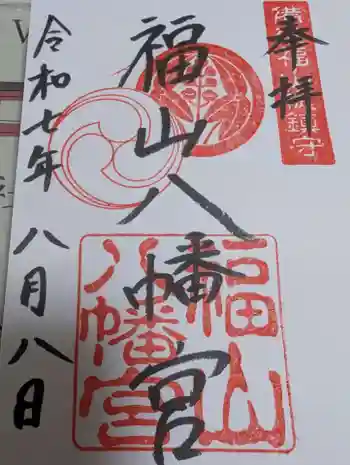 奉拝
備後福山総鎮守
福山八幡宮
福山
八幡宮
令和七年八月八日